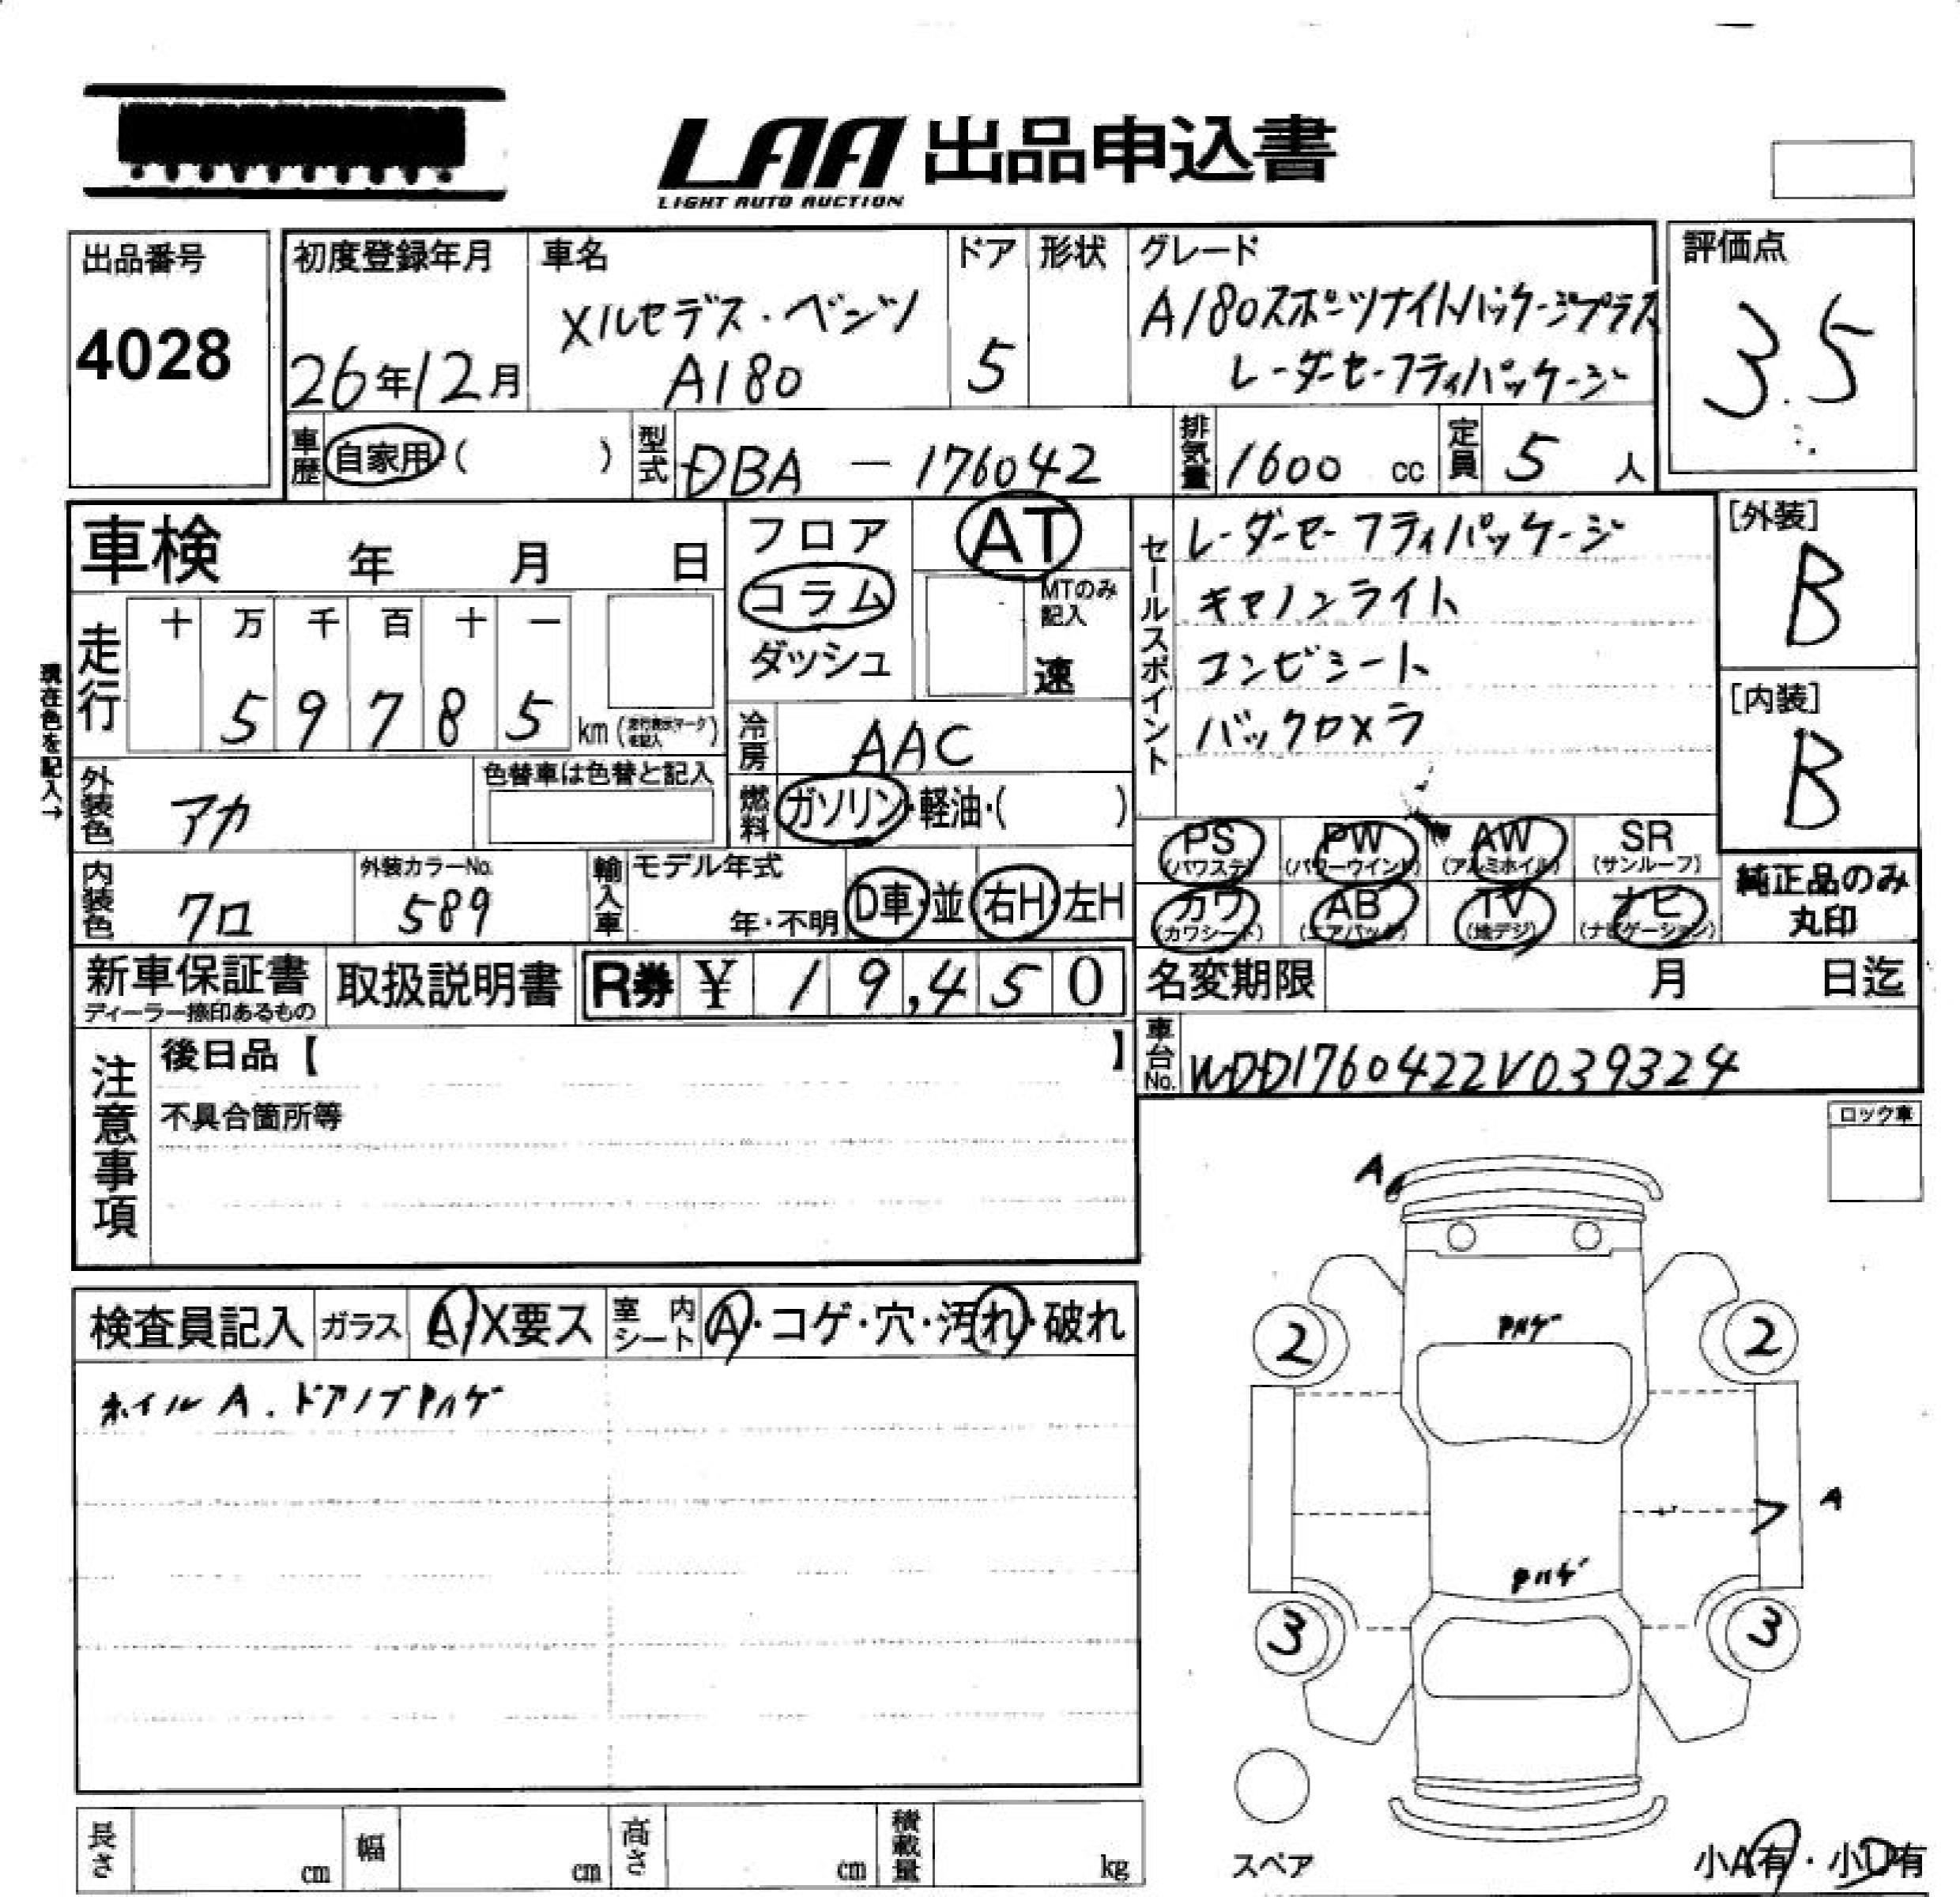 LAA 出品申込書
LIGHT AUTO AUCTION
出品番号
4028
初度登録年月
26年12月
車名
メルセデス・ベンツ
A180
ドア
5
形状
グレード
A180スポーツナイトパッケージプラス
レーダーセーフティパッケージ
評価点
3.5
車歴 自家用 ( )
型式 DBA - 176042
排気量 1600 cc
定員 5 人
車検 年 月 日
走行
十 万 千 百 十 一
5 9 7 8 5 km (走行表示マークを記入)
現在色を記入→
フロア
コラム
ダッシュ
AT
MTのみ記入
速
冷房 AAC
燃料 ガソリン・軽油・( )
外装色 アカ
色替車は色替と記入
内装色 クロ
外装カラーNo.
589
輸入車
モデル年式
年・不明
D車・並
右H・左H
セールスポイント
レーダーセーフティパッケージ
キセノンライト
コンビシート
バックカメラ
[外装]
B
[内装]
B
PS (パワステ)
PW (パワーウインド)
AW (アルミホイル)
SR (サンルーフ)
カワ (カワシート)
AB (エアバック)
TV (地デジ)
ナビ (ナビゲーション)
純正品のみ
丸印
新車保証書
ディーラー捺印あるもの
取扱説明書
R券 ¥ 19,450
名変期限 月 日迄
車台No. WDD1760422V039324
注意事項
後日品【 】
不具合箇所等
ロック車
検査員記入
ガラス A・X要ス
室内シート A・コゲ・穴・汚れ・破れ
ホイルA. ドアノブPハゲ
A
Pハゲ
2
2
A
Pハゲ
3
3
スペア
小A有・小D有
長さ cm
幅 cm
高さ cm
積載量 kg